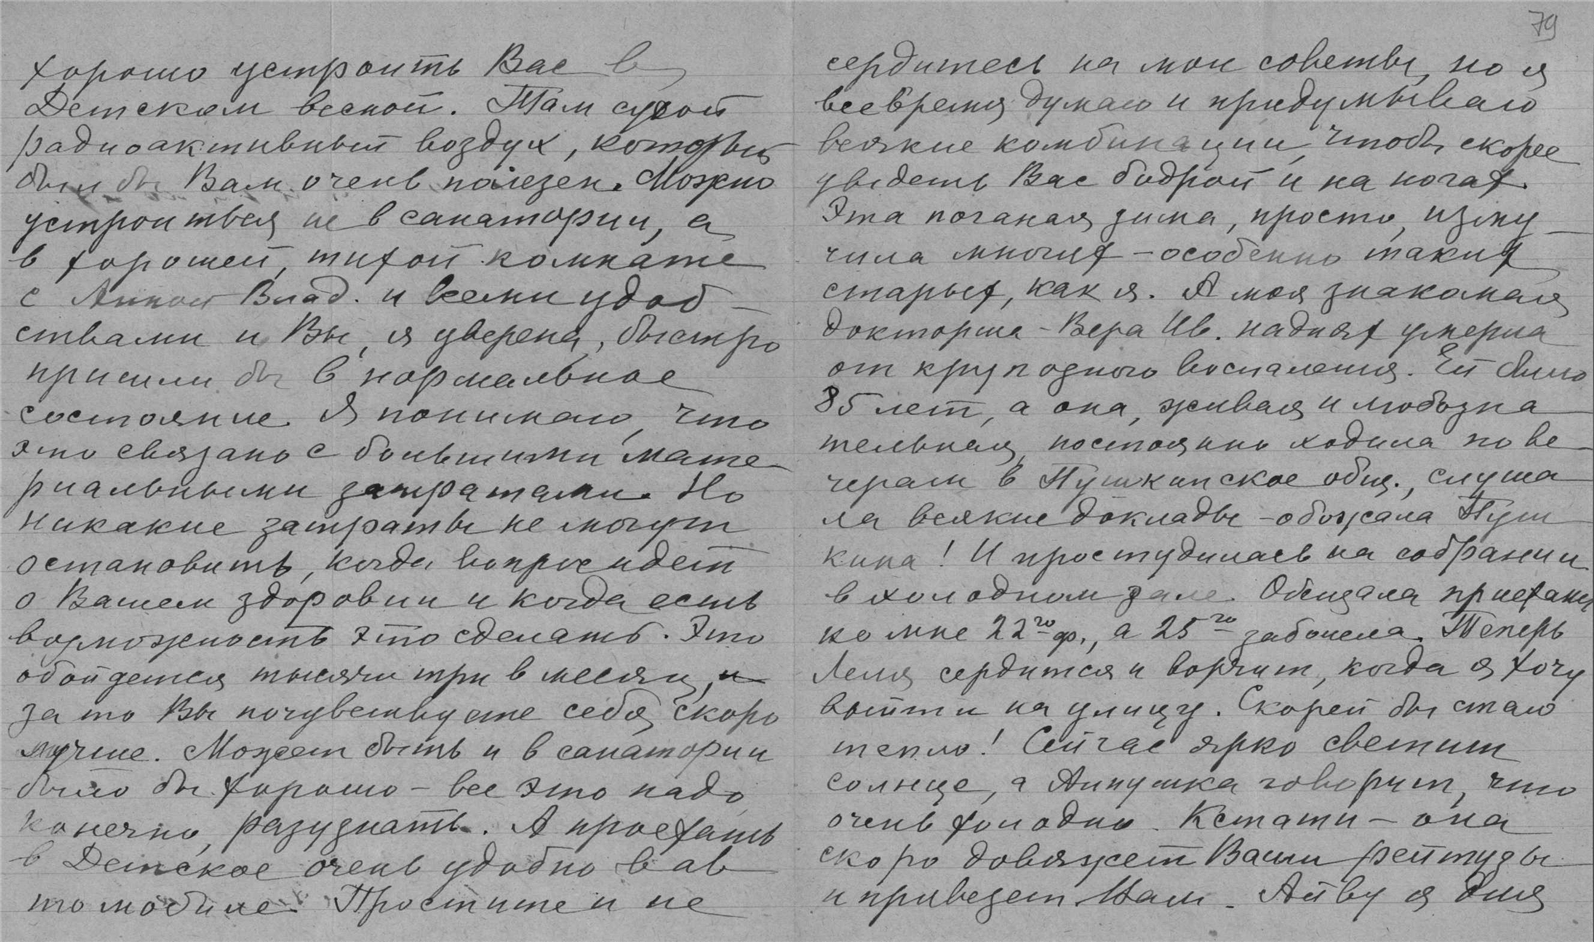 хорошо устроить Вас в
Детском весной. Там сухой
радиоактивный воздух, который
был бы Вам очень полезен. Можно
устроиться не в санатории, а
в хорошей, тихой комнате
с Анной Влад. и всеми удоб-
ствами и Вы, я уверена, быстро
пришли бы в нормальное
состояние. Я понимаю, что
это связано с большими мате-
риальными затратами. Но
никакие затраты не могут
остановить, когда вопрос идет
о Вашем здоровии и когда есть
возможность это сделать. Это
обойдется тысячи три в месяц, и
за то Вы почувствуете себя скоро
лучше. Может быть и в санатории
было бы хорошо – все это надо,
конечно, разузнать. А проехать
в Детское очень удобно в ав-
томобиле. Простите и не
79
сердитесь на мои советы, но я
все время думаю и придумываю
всякие комбинации, чтобы скорее
увидеть Вас бодрой и на ногах.
Эта поганая зима, просто, изму-
чила многих – особенно таких
старых, как я. А моя знакомая
докторша – Вера Ив. на днях умерла
от крупозного воспаления. Ей было
85 лет, а она, живая и любозна-
тельная, постоянно ходила по ве-
черам в Пушкинское общ., слуша-
ла всякие доклады – обожала Пуш-
кина! И простудилась на собрании
в холодном зале. Обещала приехать
ко мне 22го ф., а 25го заболела. Теперь
Леля сердится и ворчит, когда я хочу
выйти на улицу. Скорей бы стало
тепло! Сейчас ярко светит
солнце, а Аннушка говорит, что
очень холодно. Кстати – она
скоро довяжет Ваши рейтузы
и привезет Вам. Айву я для